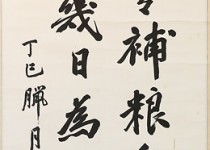 補粮
幾日為
丁巳臘月